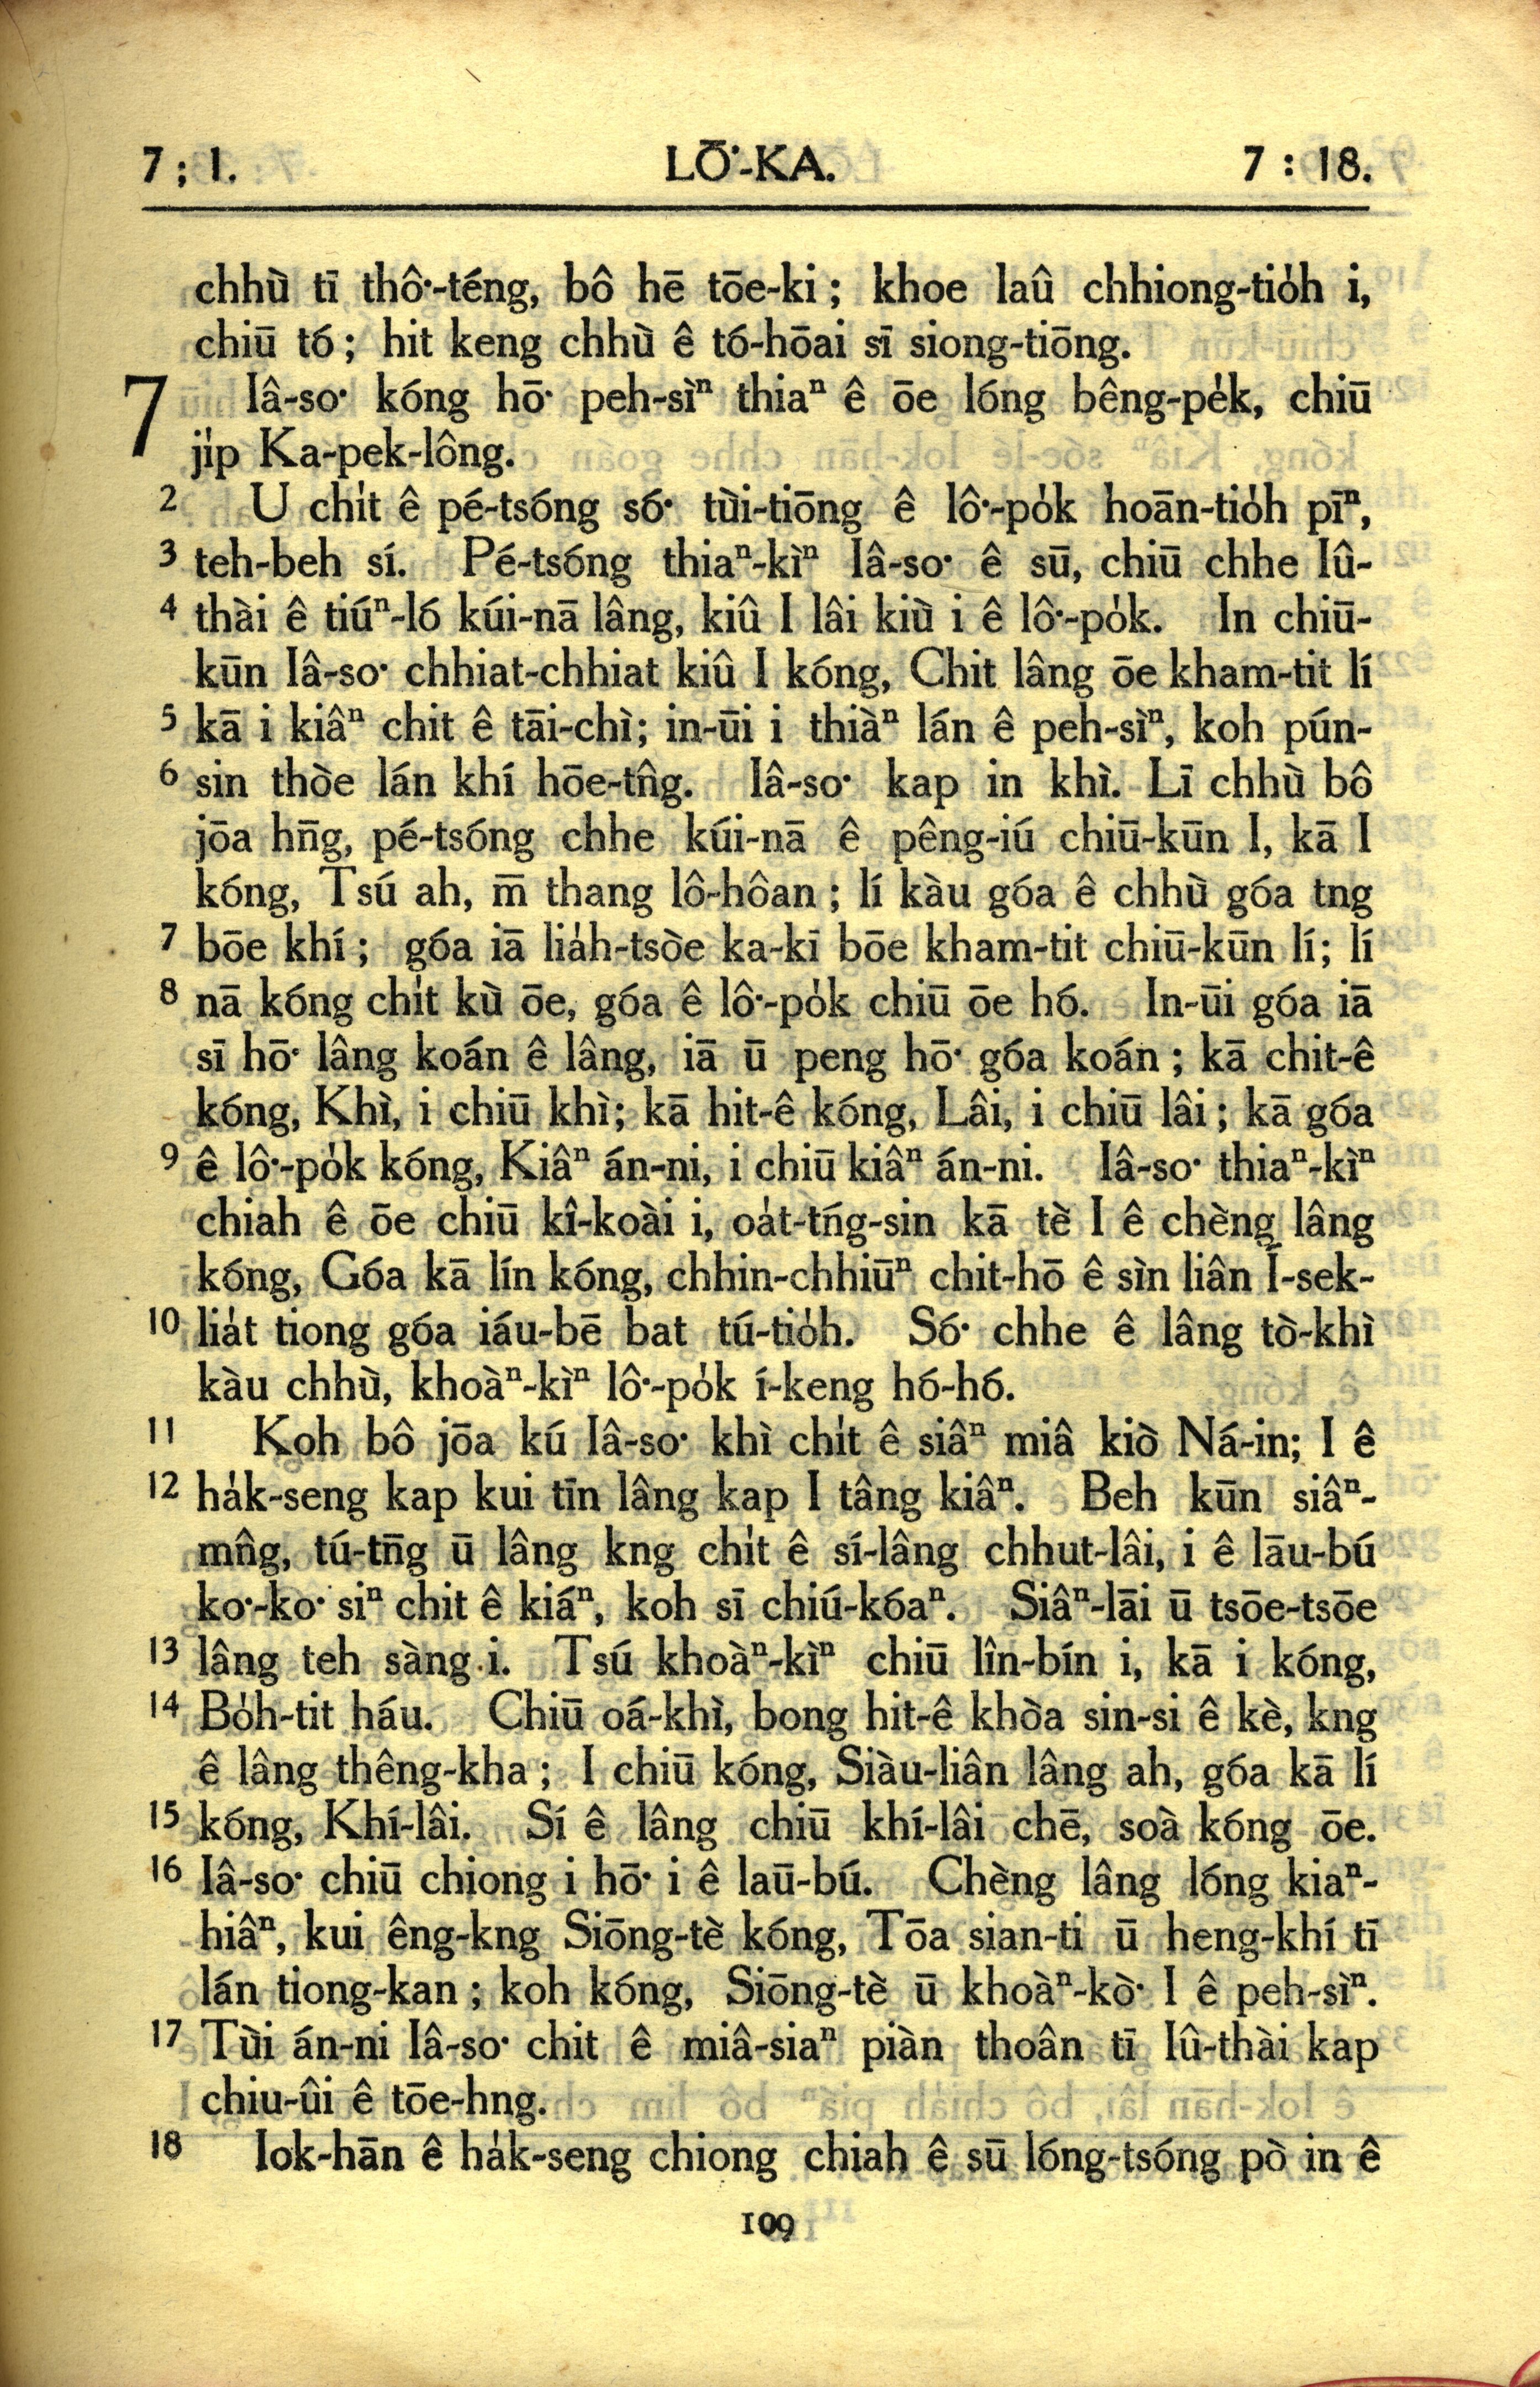 7 ; 1. LŌ͘-KA. 7 : 18.
chhù tī thô͘-téng, bô hē tōe-ki ; khoe laû chhiong-tio̍h i,
chiū tó ; hit keng chhù ê tó-hōai sī siong-tiōng.
7 Iâ-so͘ kóng hō͘ peh-sìⁿ thiaⁿ ê ōe lóng bêng-pe̍k, chiū
ji̍p Ka-pek-lông.
2 U chi̍t ê pé-tsóng só͘ tùi-tiōng ê lô͘-po̍k hoān-tio̍h pīⁿ,
3 teh-beh sí. Pé-tsóng thiaⁿ-kìⁿ Iâ-so͘ ê sū, chiū chhe Iû-
4 thài ê tiúⁿ-ló kúi-nā lâng, kiû I lâi kiù i ê lô͘-po̍k. In chiū-
kūn Iâ-so͘ chhiat-chhiat kiû I kóng, Chit lâng ōe kham-tit lí
5 kā i kiâⁿ chit ê tāi-chì; in-ūi i thiàⁿ lán ê peh-sìⁿ, koh pún-
6 sin thòe lán khí hōe-tn̂g. Iâ-so͘ kap in khì. Lī chhù bô
jōa hn̄g, pé-tsóng chhe kúi-nā ê pêng-iú chiū-kūn I, kā I
kóng, Tsú ah, m̄ thang lô-hôan ; lí kàu góa ê chhù góa tng
7 bōe khí ; góa iā lia̍h-tsòe ka-kī bōe kham-tit chiū-kūn lí; lí
8 nā kóng chi̍t kù ōe, góa ê lô͘-po̍k chiū ōe hó. In-ūi góa iā
sī hō͘ lâng koán ê lâng, iā ū peng hō͘ góa koán ; kā chit-ê
kóng, Khì, i chiū khì; kā hit-ê kóng, Lâi, i chiū lâi ; kā góa
9 ê lô͘-po̍k kóng, Kiâⁿ án-ni, i chiū kiâⁿ án-ni. Iâ-so͘ thiaⁿ-kìⁿ
chiah ê ōe chiū kî-koài i, oa̍t-tńg-sin kā tè I ê chèng lâng
kóng, Góa kā lín kóng, chhin-chhiūⁿ chit-hō ê sìn liân Í-sek-
10 lia̍t tiong góa iáu-bē bat tú-tio̍h. Só͘ chhe ê lâng tò-khì
kàu chhù, khoàⁿ-kìⁿ lô͘-po̍k í-keng hó-hó.
11 Koh bô jōa kú Iâ-so͘ khì chi̍t ê siâⁿ miâ kiò Ná-in; I ê
12 ha̍k-seng kap kui tīn lâng kap I tâng kiâⁿ. Beh kūn siâⁿ-
mn̂g, tú-tn̄g ū lâng kng chi̍t ê sí-lâng chhut-lâi, i ê lāu-bú
ko͘-ko͘ siⁿ chit ê kiáⁿ, koh sī chiú-kóaⁿ. Siâⁿ-lāi ū tsōe-tsōe
13 lâng teh sàng i. Tsú khoàⁿ-kìⁿ chiū lîn-bín i, kā i kóng,
14 Bo̍h-tit háu. Chiū oá-khì, bong hit-ê khòa sin-si ê kè, kng
ê lâng thêng-kha ; I chiū kóng, Siàu-liân lâng ah, góa kā lí
15 kóng, Khí-lâi. Sí ê lâng chiū khí-lâi chē, soà kóng ōe.
16 Iâ-so͘ chiū chiong i hō͘ i ê laū-bú. Chèng lâng lóng kiaⁿ-
hiâⁿ, kui êng-kng Siōng-tè kóng, Tōa sian-ti ū heng-khí tī
lán tiong-kan ; koh kóng, Siōng-tè ū khoàⁿ-kò͘ I ê peh-sìⁿ.
17 Tùi án-ni Iâ-so͘ chit ê miâ-siaⁿ piàn thoân tī Iû-thài kap
chiu-ûi ê tōe-hng.
18 Iok-hān ê ha̍k-seng chiong chiah ê sū lóng-tsóng pò in ê
109